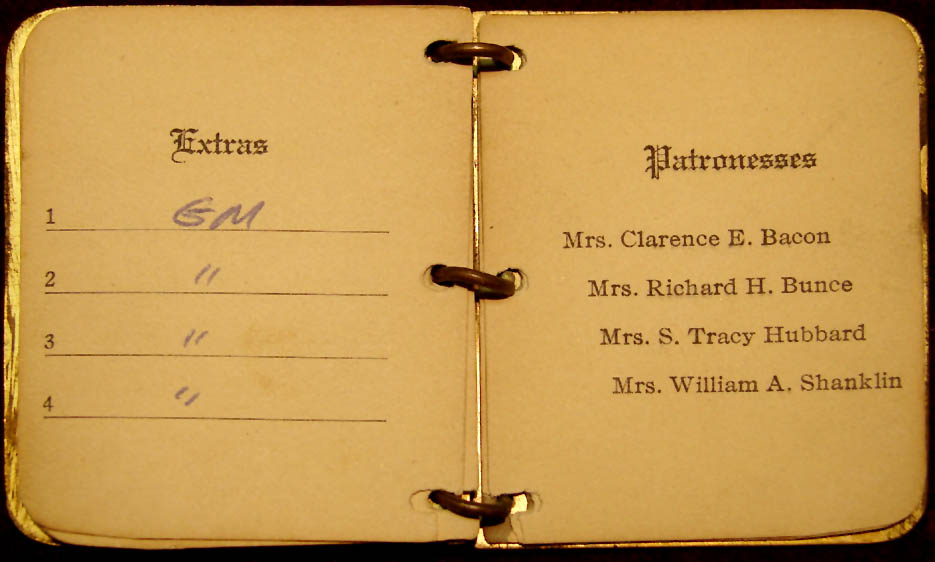 Extras
1 GM
2 "
3 "
4 "
Patronesses
Mrs. Clarence E. Bacon
Mrs. Richard H. Bunce
Mrs. S. Tracy Hubbard
Mrs. William A. Shanklin